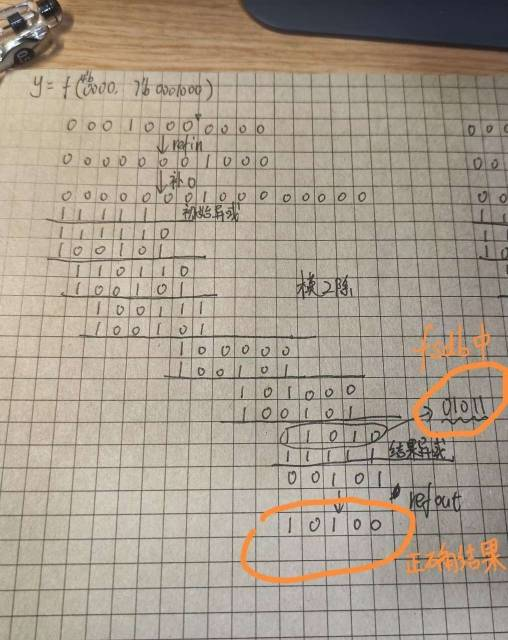 y = f(4'b 0000, 7'b 0001000)
0 0 0 1 0 0 0 0 0 0 0
↓ refin
0 0 0 0 0 0 0 1 0 0 0
↓ 补0
0 0 0 0 0 0 0 1 0 0 0 0 0 0 0 0
1 1 1 1 1 初始异或
1 1 1 1 1 0
1 0 0 1 0 1
1 1 0 1 1 0
1 0 0 1 0 1
模2除
1 0 0 1 1 1
1 0 0 1 0 1
1 0 0 0 0 0
1 0 0 1 0 1
fsdb中
1 0 1 0 0 0
1 0 0 1 0 1
01011
1 1 0 1 0
1 1 1 1 1 结果异或
0 0 1 0 1
↓ refout
1 0 1 0 0
正确结果
0 0
0 0
0 0
1 1
1 1
1 0
1